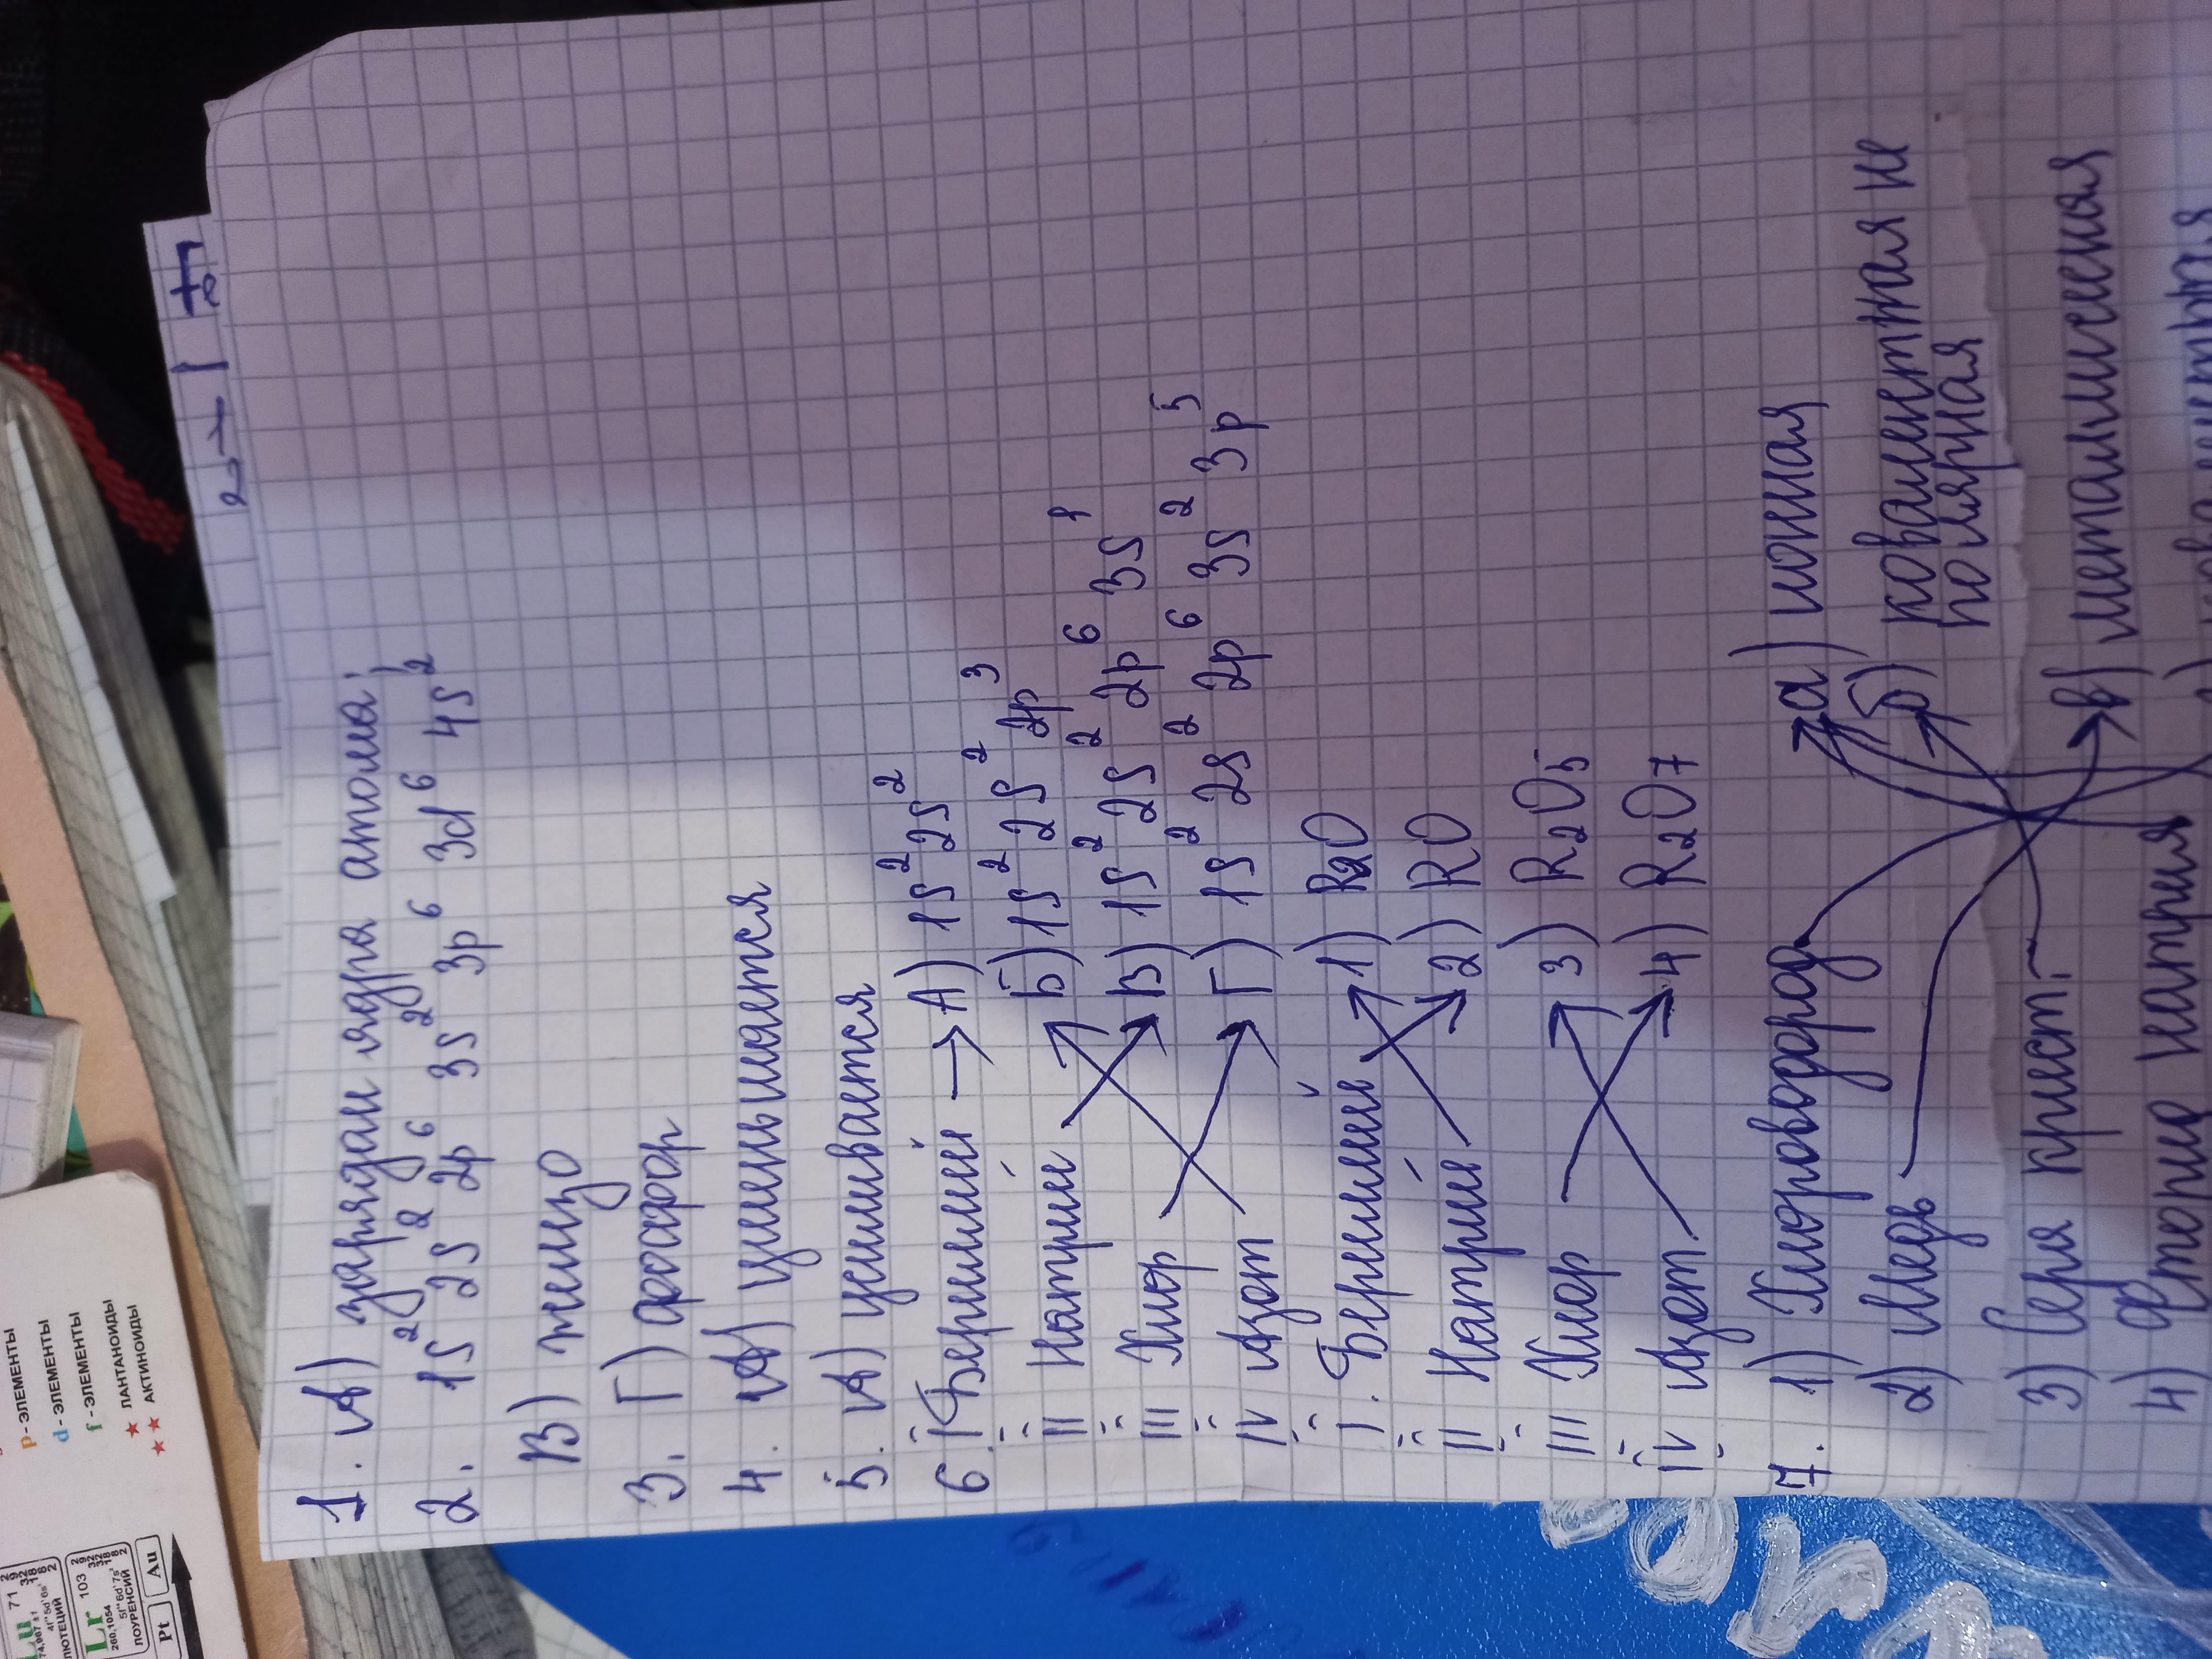 1. А) зарядом ядра атома;
2. 1s² 2s² 2p⁶ 3s² 3p⁶ 3d⁶ 4s²
В)
3. Г) фосфор
4. А) уменьшается
5. А) усиливается
6. I Бериллий → А) 1s² 2s²
II Натрий Б) 1s² 2s² 2p³
III Хлор В) 1s² 2s² 2p⁶ 3s¹
IV Азот Г) 1s² 2s² 2p⁶ 3s² 3p⁵
I. Бериллий 1) R2O
II Натрий 2) RO
III Хлор 3) R₂O₅
IV Азот 4) R₂O₇
7. 1) Хлороводород а) ионая
2) Медь б) ковалентная не
полярная
3) Сера крист. в) металлическая
4) Фторид натрия
p - ЭЛЕМЕНТЫ
d - ЭЛЕМЕНТЫ
f - ЭЛЕМЕНТЫ
★ ЛАНТАНОИДЫ
★★ АКТИНОИДЫ
Lu 71
ЛЮТЕЦИЙ
Lr 103
260,1054
ЛОУРЕНСИЙ
Pt
Au